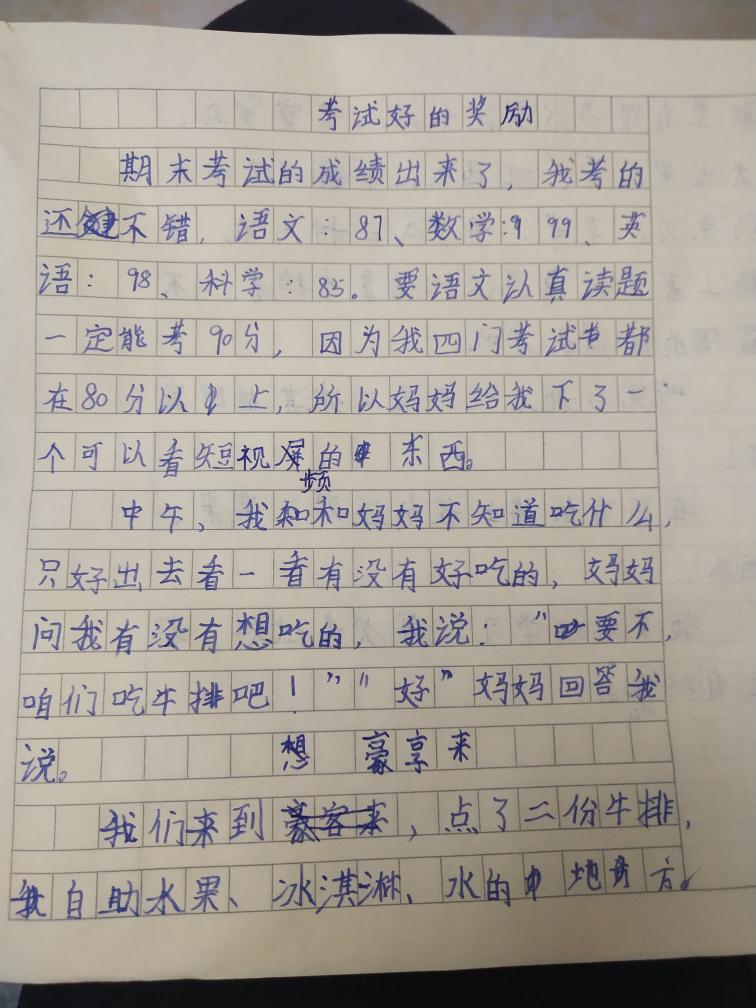 考试好的奖励
期末考试的成绩出来了，我考的
还不错，语文：87、数学：99、英
语：98、科学：85。要语文认真读题
一定能考90分，因为我四门考试都
在80分以上，所以妈妈给我下了一
个可以看短视频的东西。
中午、我和妈妈不知道吃什么，
只好出去看一看有没有好吃的，妈妈
问我有没有想吃的，我说：“要不，
咱们吃牛排吧！”“好”妈妈回答我
说。
想 豪享来
我们来到豪客来，点了二份牛排，
自助水果、冰淇淋、水的地方。